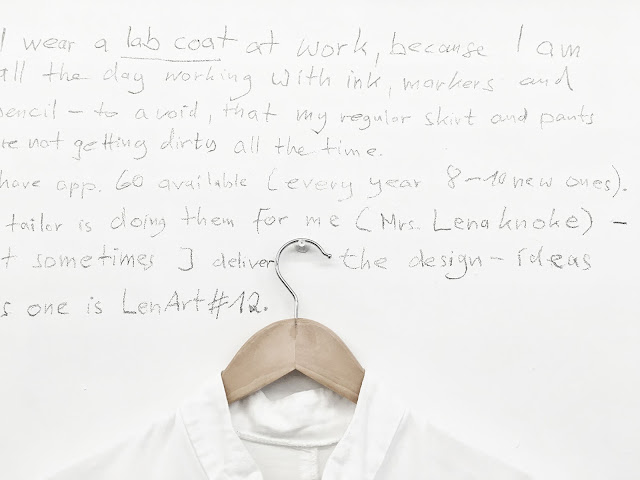 I wear a lab coat at work, because I am
all the day working with ink, markers and
pencil – to avoid, that my regular skirt and pants
re not getting dirty all the time.
have app. 60 available (every year 8–10 new ones).
tailer is doing them for me (Mrs. Lena Knoke) –
t sometimes I deliver the design – ideas
s one is LenArt #12.